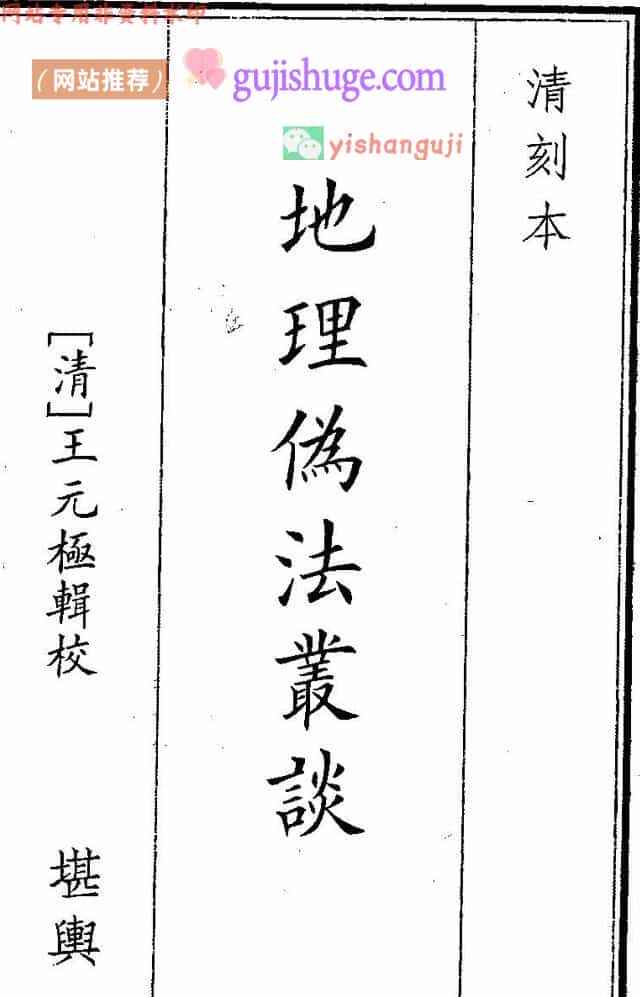 网站专用非资料水印
（网站推荐）
gujishuge.com
yishanguji
清刻本
地理偽法叢談
［清］王元極輯校
堪輿